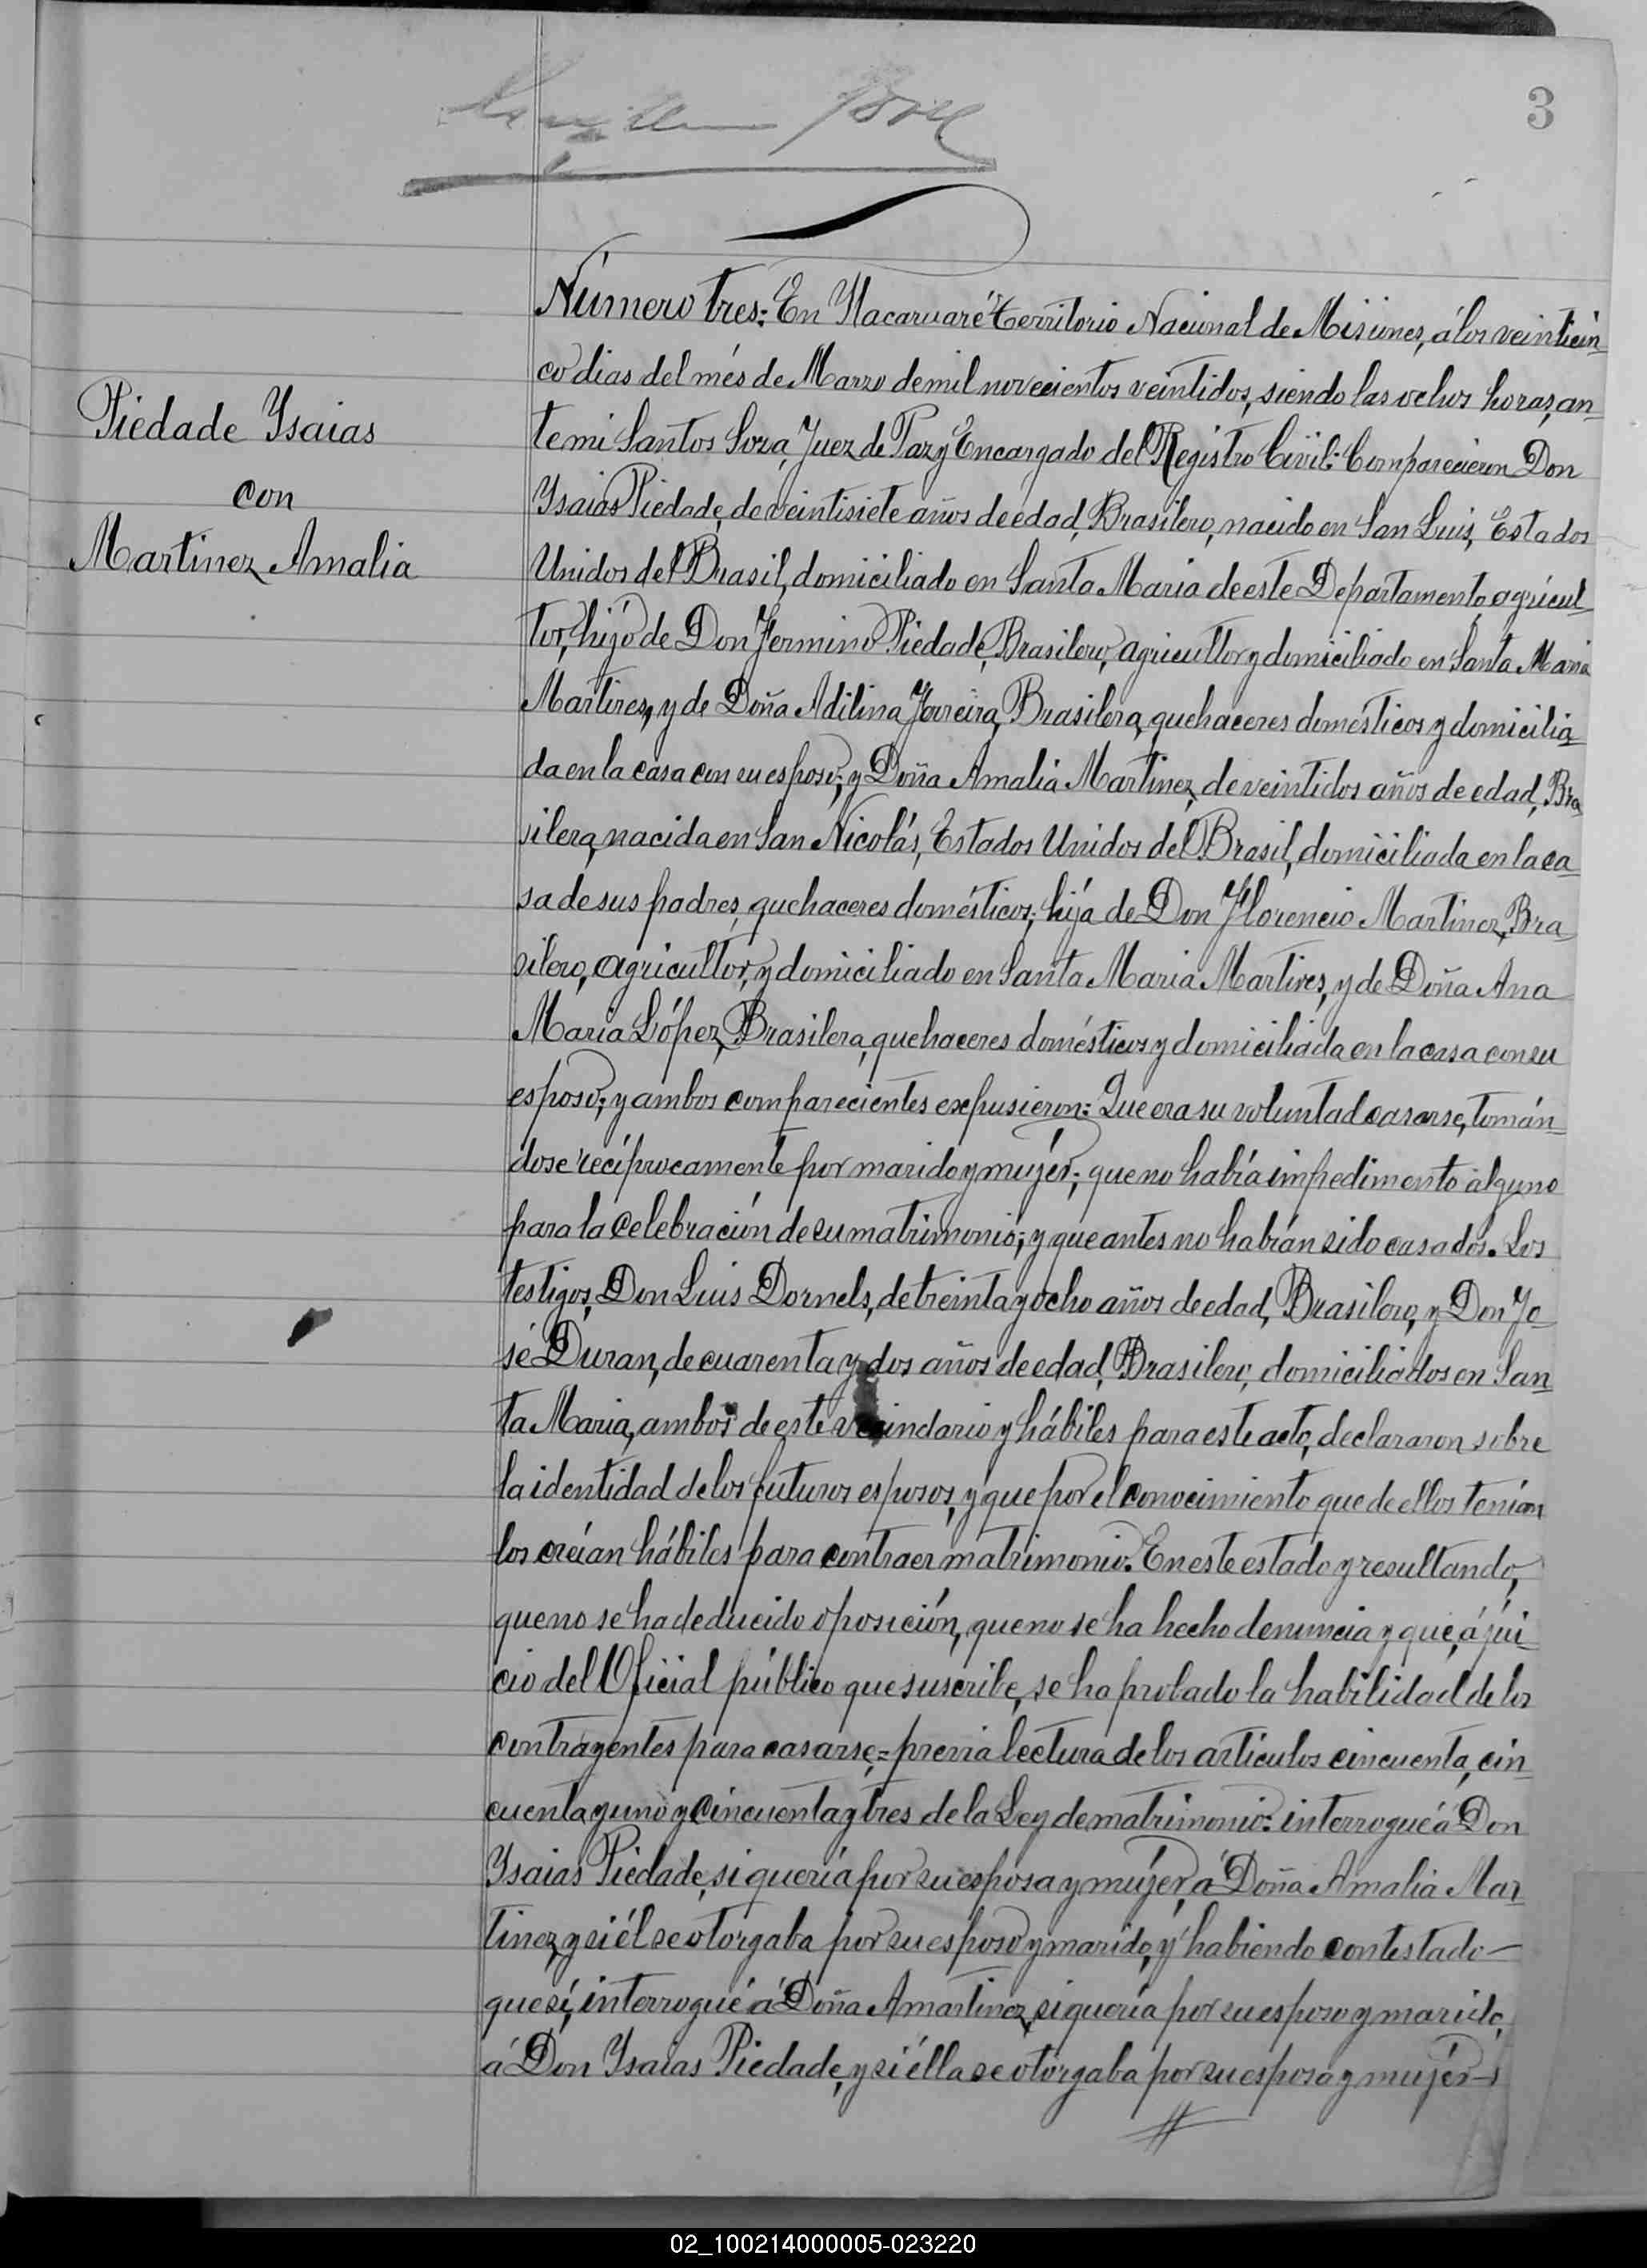 3
Número tres: En Itacaruaré Territorio Nacional de Misiones, á los veinticin
co dias del més de Marzo de mil novecientos veintidos, siendo las ochos horas, an
Piedade Ysaias
te mi Santos Soza, Juez de Paz y Encargado del Registro Civil: Comparecieron Don
con
Ysaias Piedade, de veintisiete años de edad, Brasilero, nacido en San Luis, Estados
Martinez Amalia
Unidos del Brasil, domiciliado en Santa Maria de este Departamento, agricul
tor, hijo de Don Fermino Piedade, Brasilero, agricultor y domiciliado en Santa Maria
Martires, y de Doña Adilina Ferreira, Brasilera, quehaceres domésticos y domicilia
da en la casa con su esposo; y Doña Amalia Martinez, de veintidos años de edad, Bra
silera, nacida en San Nicolás, Estados Unidos del Brasil, domiciliada en la ca
sa de sus padres, quehaceres domésticos; hija de Don Florencio Martinez, Bra
silero, agricultor, y domiciliado en Santa Maria Martires, y de Doña Ana
María López, Brasilera, quehaceres domésticos y domiciliada en la casa con su
esposo; y ambos comparecientes expusieron: Que era su voluntad casarse, tomán
dose recíprocamente por marido y mujer; que no había impedimento alguno
para la celebración de su matrimonio; y que antes no habían sido casados. Los
testigos, Don Luis Dornels, de treinta y ocho años de edad, Brasilero, y Don Jo
sé Duran, de cuarenta y dos años de edad, Brasilero, domiciliados en San
ta Maria, ambos de este vecindario y hábiles para este acto, declararon sobre
la identidad de los futuros esposos, y que por el conocimiento que de ellos tenían,
los creían hábiles para contraer matrimonio. En este estado y resultando,
que no se ha deducido oposición, que no se ha hecho denuncia y que, á jui
cio del Oficial público que suscribe, se ha probado la habilidad de los
contrayentes para casarse,= previa lectura de los articulos cincuenta, cin
cuenta y uno y cincuenta y tres de la Ley de matrimonio: interrogué á Don
Ysaias Piedade, si quería por su esposa y mujer, á Doña Amalia Mar
tinez, y si él se otorgaba por su esposo y marido, y habiendo contestado
que sí, interrogué á Doña Amartinez, si quería por su esposo y marido,
á Don Ysaias Piedade, y si élla se otorgaba por su esposa y mujer
02_100214000005-023220